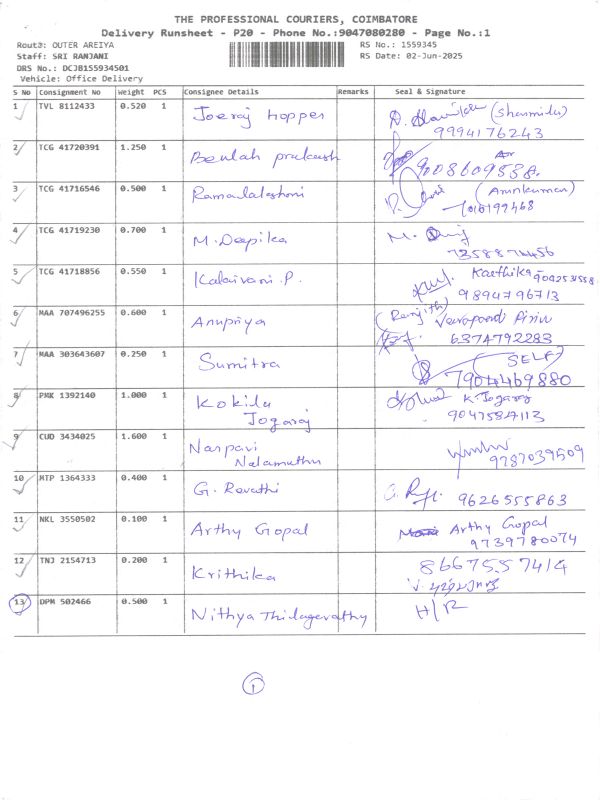 THE PROFESSIONAL COURIERS, COIMBATORE
Delivery Runsheet - P20 - Phone No.:9047080280 - Page No.:1
Route: OUTER AREIYA RS No.: 1559345
Staff: SRI RANJANI RS Date: 02-Jun-2025
DRS No.: DCJB155934501
Vehicle: Office Delivery
S No Consignment No Weight PCS Consignee Details Remarks Seal & Signature
1 TVL 8112433 0.520 1 Joeraj Hopper (Sharmila)
9994176243
2 TCG 41720391 1.250 1 Beulah prakash
9008609538
3 TCG 41716546 0.500 1 Ramalakshmi (Arunkumar)
7010199468
4 TCG 41719230 0.700 1 M. Deepika M.
7358874456
5 TCG 41718856 0.550 1 Kalaivani. P. Karthika 9042531558
9894796713
6 MAA 707496255 0.600 1 Anupriya (Ranjith)
6374792283
7 MAA 303643607 0.250 1 Sumitra SELF
7904469880
8 PMK 1392140 1.000 1 Kokila K. Jogaraj
Jogaraj 9047587113
9 CUD 3434025 1.600 1 Narpavi
Nalamuthu 9787039509
10 MTP 1364333 0.400 1 G. Revathi 9626555863
11 NKL 3550502 0.100 1 Arthy Gopal Arthy Gopal
9739780074
12 TNJ 2154713 0.200 1 Krithika 8667557414
13 DPM 502466 0.500 1 Nithya Thilagavathy H/R
1